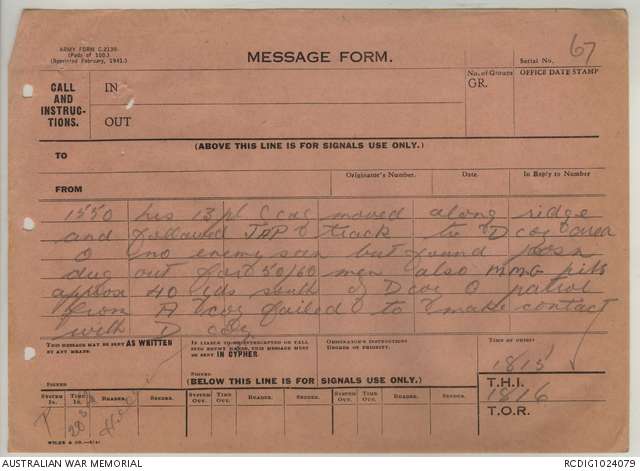 ARMY FORM C.2136
(Pads of 100.)
(Reprinted February, 1941.)
MESSAGE FORM.
67
Serial No.
CALL
AND
INSTRUC-
TIONS.
IN
OUT
No. of Groups
GR.
OFFICE DATE STAMP
(ABOVE THIS LINE IS FOR SIGNALS USE ONLY.)
TO
FROM
Originator's Number.
Date.
In Reply to Number
1550 hrs 13 pl C coy moved along ridge
and followed JAP track to D coy area
O no enemy seen but found posn
dug out for 50/60 men also MMG pits
approx 40 yds south of D coy O patrol
from A coy failed to make contact
with D coy
THIS MESSAGE MAY BE SENT AS WRITTEN
BY ANY MEANS.
IF LIABLE TO BE INTERCEPTED OR FALL
INTO ENEMY HANDS, THIS MESSAGE MUST
BE SENT IN CIPHER
ORIGINATOR'S INSTRUCTIONS
DEGREE OF PRIORITY.
TIME OF ORIGIN
1815
SIGNED
SIGNED
(BELOW THIS LINE IS FOR SIGNALS USE ONLY.)
T.H.I.
1816
T.O.R.
SYSTEM
In.
TIME
In.
READER.
SENDER.
SYSTEM
Out.
TIME
Out.
READER.
SENDER.
SYSTEM
Out.
TIME
Out.
READER.
SENDER.
AUSTRALIAN WAR MEMORIAL
RCDIG1024079